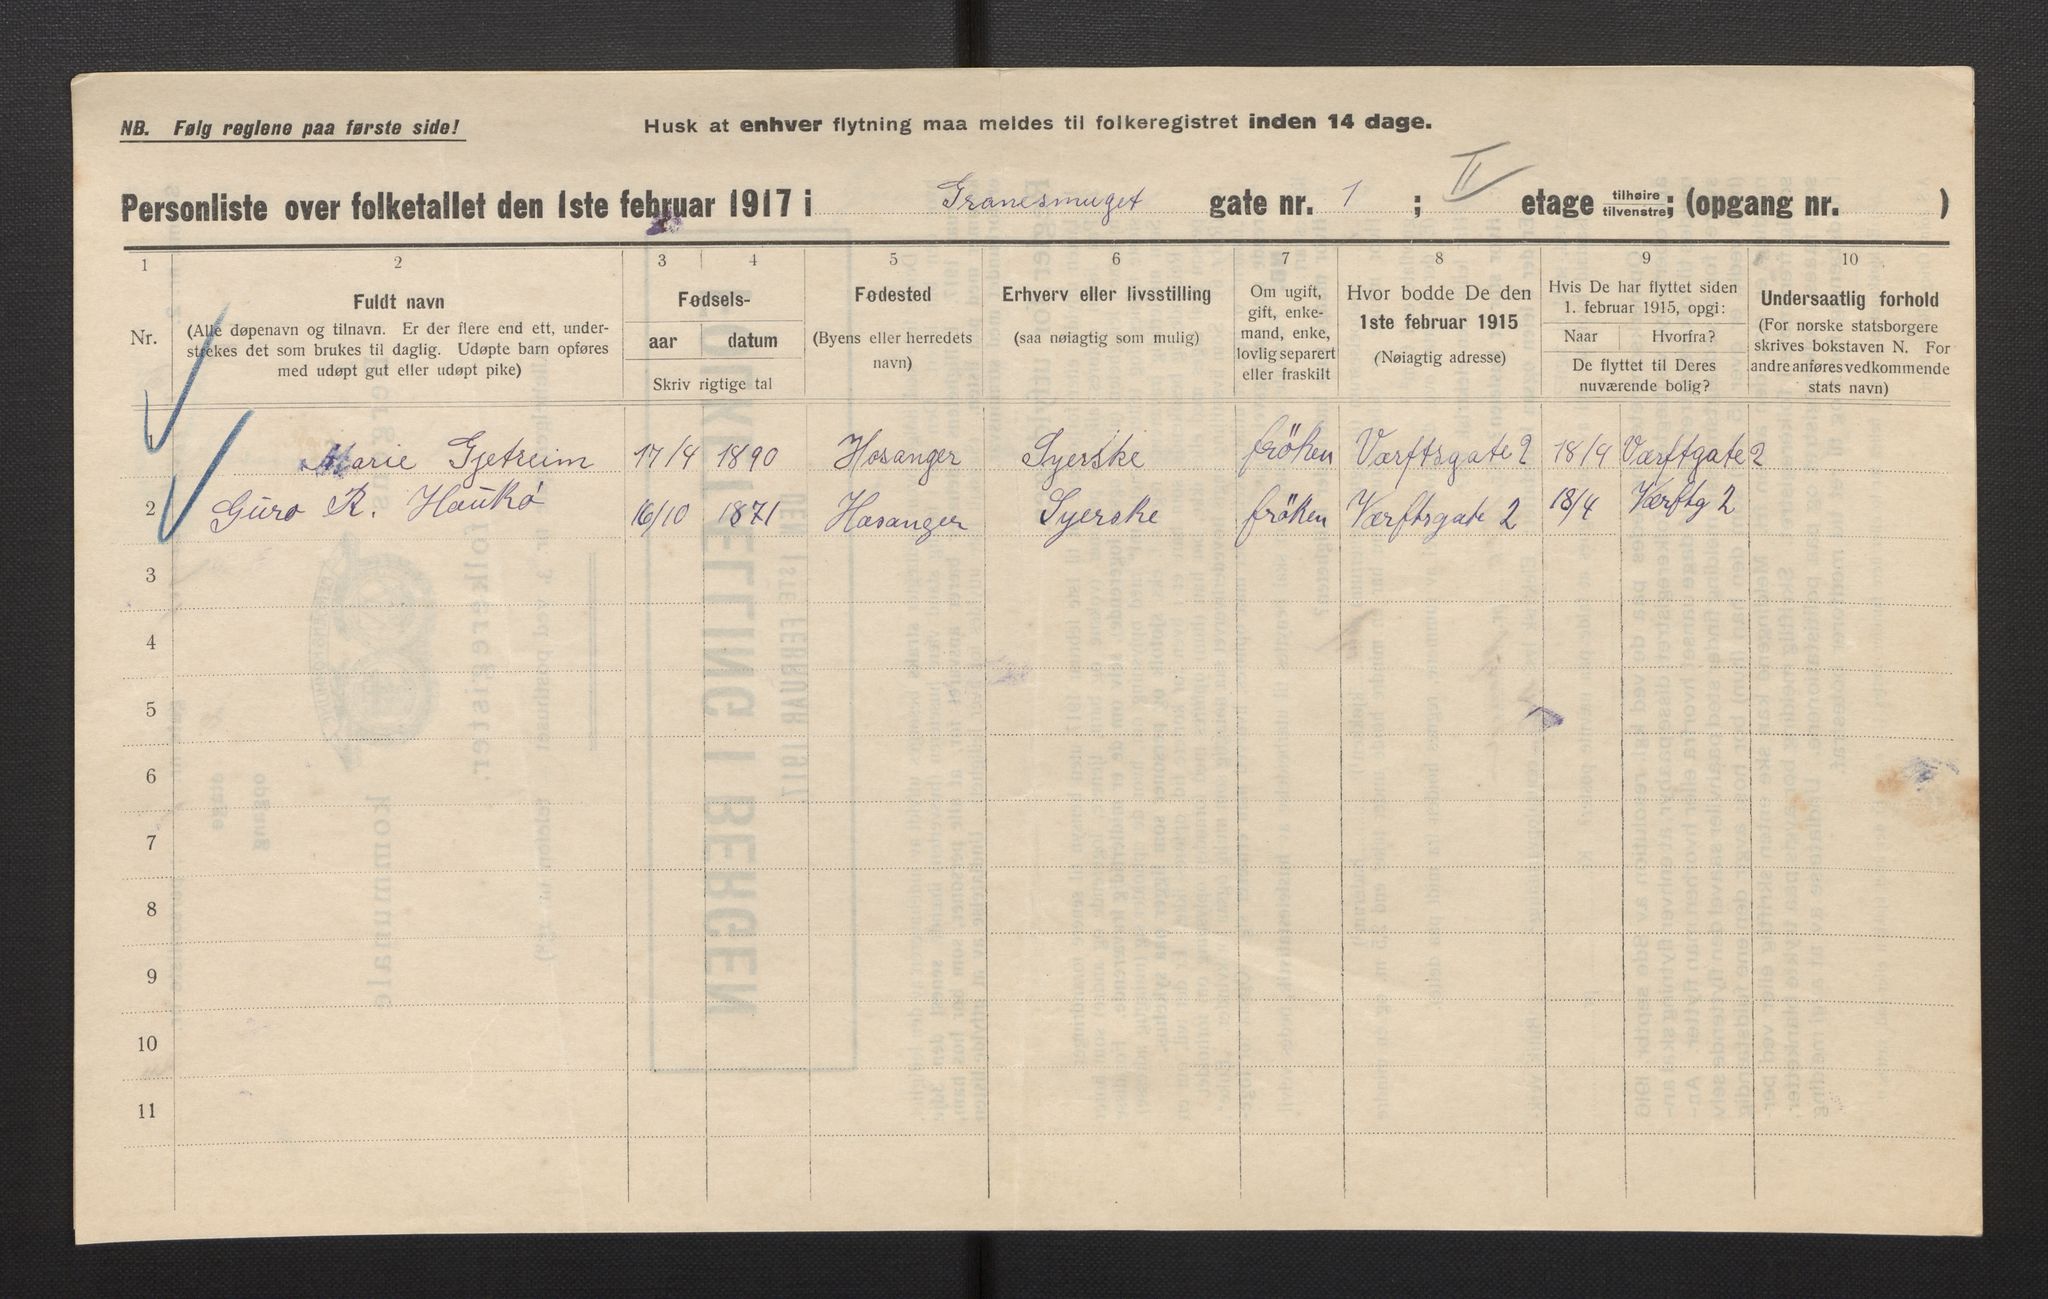 NB. Følg reglene paa første side!
Husk at enhver flytning maa meldes til folkeregistret inden 14 dage.
Personliste over folketallet den 1ste februar 1917 i Granesmuget gate nr. 1 ; II etage tilhøire tilvenstre; (opgang nr. )
1 2 3 4 5 6 7 8 9 10
Nr.
Fuldt navn
(Alle døpenavn og tilnavn. Er der flere end ett, under-
strekes det som brukes til daglig. Udøpte barn opføres
med udøpt gut eller udøpt pike)
Fødsels-
aar datum
Skriv rigtige tal
Fødested
(Byens eller herredets
navn)
Erhverv eller livsstilling
(saa nøiagtig som mulig)
Om ugift,
gift, enke-
mand, enke,
lovlig separert
eller fraskilt
Hvor bodde De den
1ste februar 1915
(Nøiagtig adresse)
Hvis De har flyttet siden
1. februar 1915, opgi:
Naar Hvorfra?
De flyttet til Deres
nuværende bolig?
Undersaatlig forhold
(For norske statsborgere
skrives bokstaven N. For
andre anføres vedkommende
stats navn)
1 Marie Gjetreim 17/4 1890 Hosanger Syerske fröken Værftsgate 2 18/4 Værftgate 2
2 Guro R. Haukö 16/10 1871 Hosanger Syerske fröken Værftsgate 2 18/4 Værftg 2
3
4
5
6
7
8
9
10
11